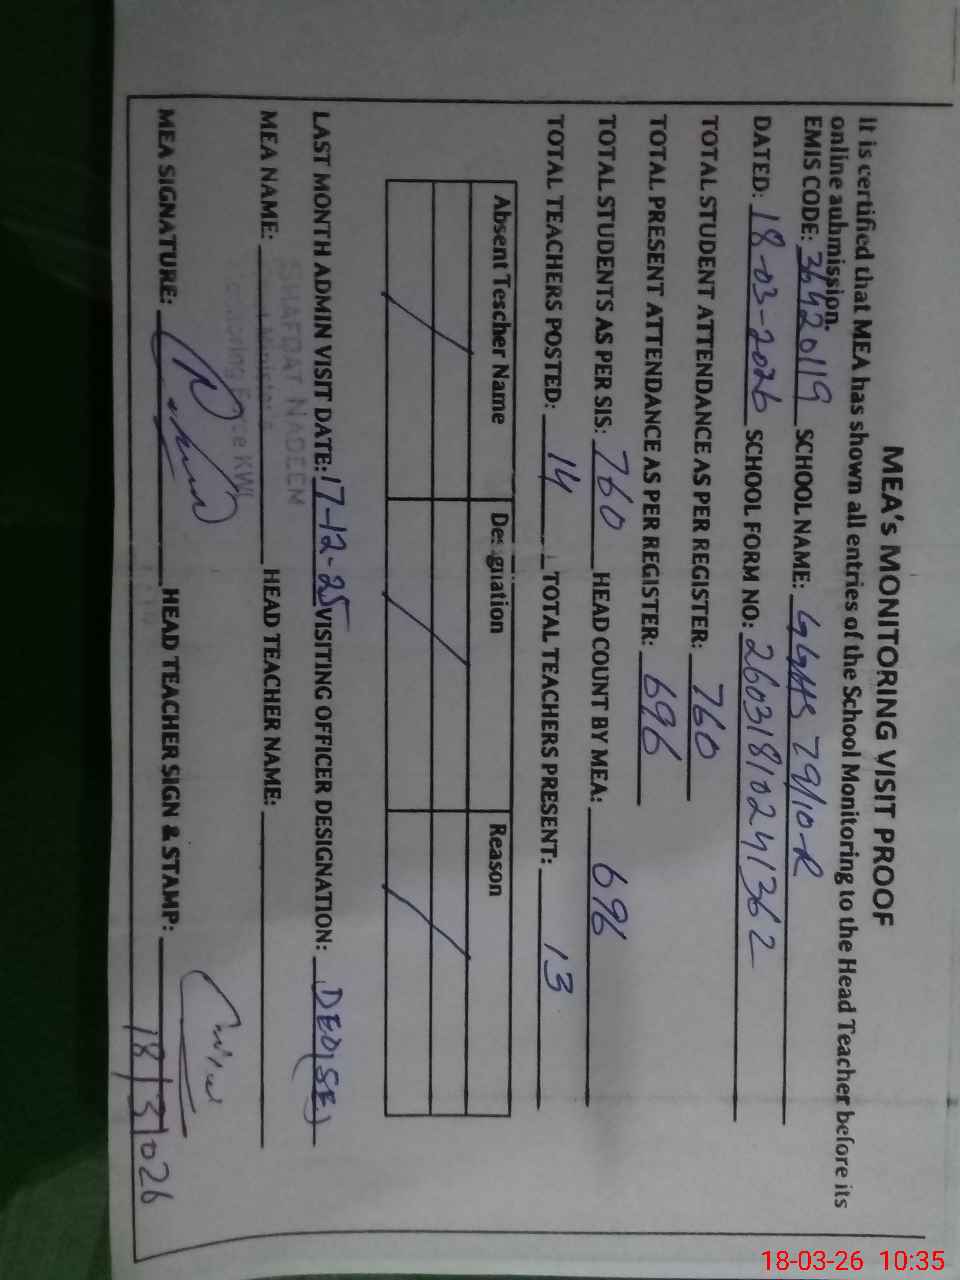 MEA's MONITORING VISIT PROOF
It is certified that MEA has shown all entries of the School Monitoring to the Head Teacher before its
online submission.
EMIS CODE: 36420119 SCHOOL NAME: GGHS 79/10-R
DATED: 18-03-2026 SCHOOL FORM NO: 26031810241362
TOTAL STUDENT ATTENDANCE AS PER REGISTER: 760
TOTAL PRESENT ATTENDANCE AS PER REGISTER: 696
TOTAL STUDENTS AS PER SIS: 760 HEAD COUNT BY MEA: 696
TOTAL TEACHERS POSTED: 14 TOTAL TEACHERS PRESENT: 13
Absent Tescher Name Designation Reason
LAST MONTH ADMIN VISIT DATE: 17-12-25 VISITING OFFICER DESIGNATION: DEO(SE)
MEA NAME: HEAD TEACHER NAME:
SHAFQAT NADEEM
Monitoring Force KWL
MEA SIGNATURE: HEAD TEACHER SIGN & STAMP:
18/3/026
18-03-26 10:35